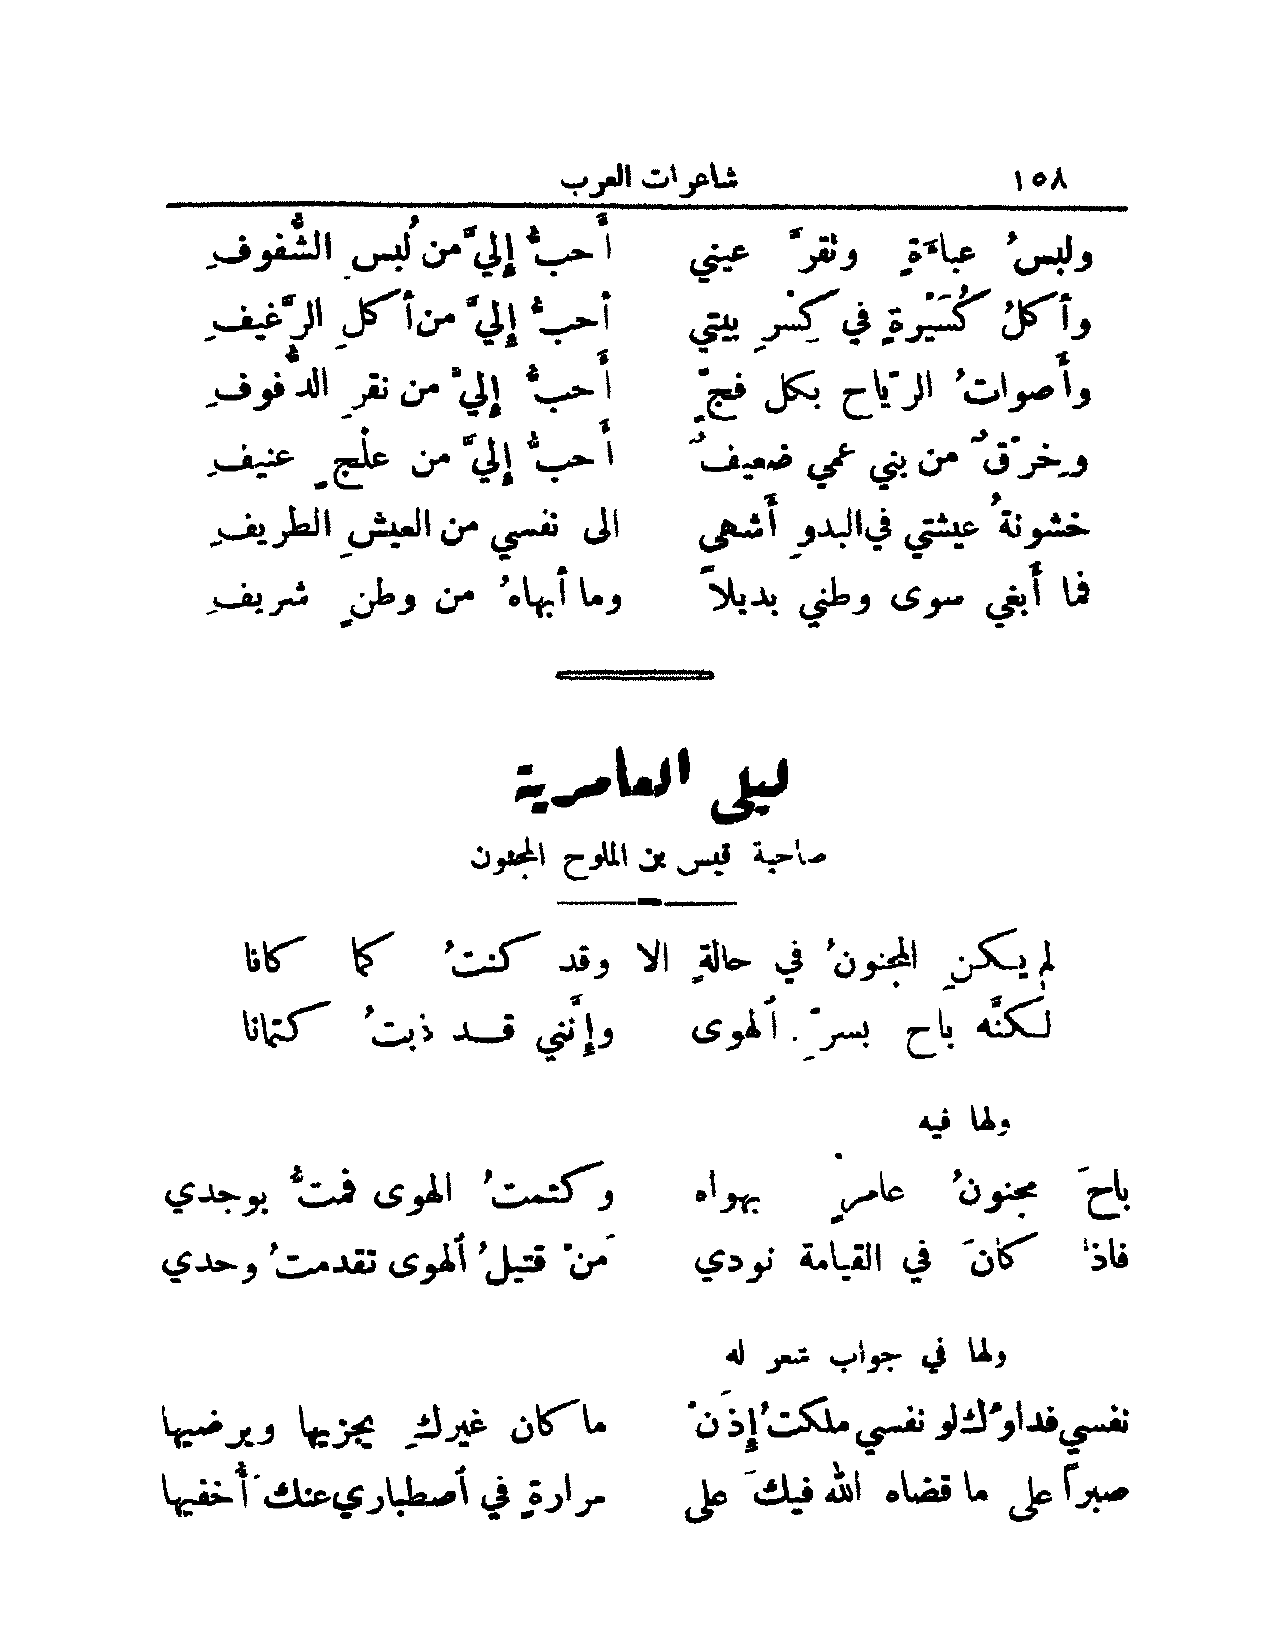 ١٥٨ شاعرات العرب
ولبسُ عباءَةٍ وتقرَّ عيني أَحبُّ إِليَّ من لُبسِ الشُّفوفِ
وأكلُ كُسَيْرةٍ في كِسْرِ بيتي أحبُّ إِليَّ من أكلِ الرَّغيفِ
وأَصواتُ الرّياح بكل فجٍّ أَحبُّ إِليَّ من نقرِ الدُّفوفِ
وخِرْقٌ من بني عمي ضعيفٌ أَحبُّ إِليَّ من علْجٍ عنيفِ
خشونةُ عيشتي في البدوِ أَشهى الى نفسي من العيشِ الطريفِ
فما أَبغي سوى وطني بديلاً وما أبهاهُ من وطنٍ شريفِ
ليلى العامرية
صاحبة قيس بن الملوح المجنون
لم يكنِ المجنونُ في حالةٍ الا وقد كنتُ كما كانا
لكنَّه باح بسرِّ الهوى وإِنَّني قد ذبتُ كتمانا
ولها فيه
باحَ مجنونُ عامرٍ بهواه وكتمتُ الهوى فمتُّ بوجدي
فاذا كانَ في القيامة نودي مَنْ قتيلُ ألهوى تقدمتُ وحدي
ولها في جواب شعر له
نفسي فداؤُك لو نفسي ملكتُ إِذَنْ ما كان غيركِ يجزيها ويرضيها
صبراً على ما قضاه الله فيكَ على مرارةٍ في أصطباري عنكَ أُخفيها